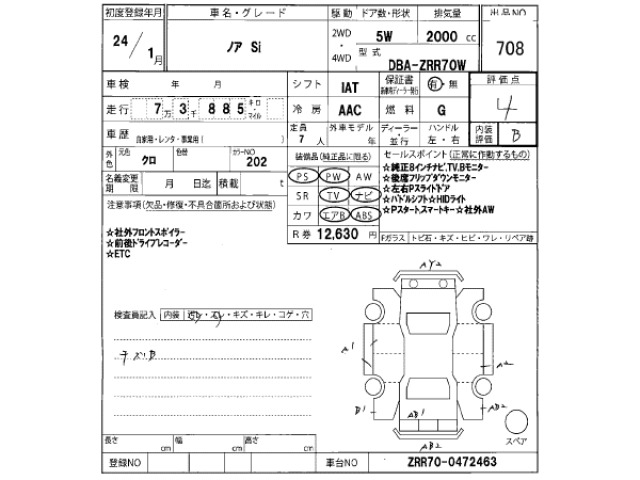 初度登録年月 車名・グレード 駆動 ドア数・形状 排気量 出品NO
24/1月 ノア Si 2WD・4WD 5W 2000cc 708
型式 DBA-ZRR70W
車検 年 月 シフト IAT 保証書 有・無 評価点
走行 7万3千885キロ マイル 冷房 AAC 燃料 G 4
車歴 自家用・レンタ・事業用( ) 定員 7人 外車モデル 年 ディーラー・並行 ハンドル 左・右 内装評価 B
外色 元色 クロ 色替 カラーNO 202 装備品(純正品に限る) セールスポイント(正常に作動するもの)
名義変更期限 月 日迄 積載 t PS PW AW ☆純正8インチナビ,TV,Bモニター
☆後席フリップダウンモニター
注意事項(欠品・修復・不具合箇所および状態) SR TV ナビ ☆左右Pスライドドア
☆パドルシフト☆HIDライト
カワ エアB ABS ☆Pスタートスマートキー☆社外AW
☆社外フロントスポイラー R券 12,630円 Fガラス トビ石・キズ・ヒビ・ワレ・リペア跡
☆前後ドライブレコーダー
☆ETC
AY2
検査員記入 内装 ・キズ・キレ・コゲ・穴
A1
チズB A2
B1 AB1 AB2
AB2 スペア
長さ cm 幅 cm 高さ cm
登録NO 車台NO ZRR70-0472463